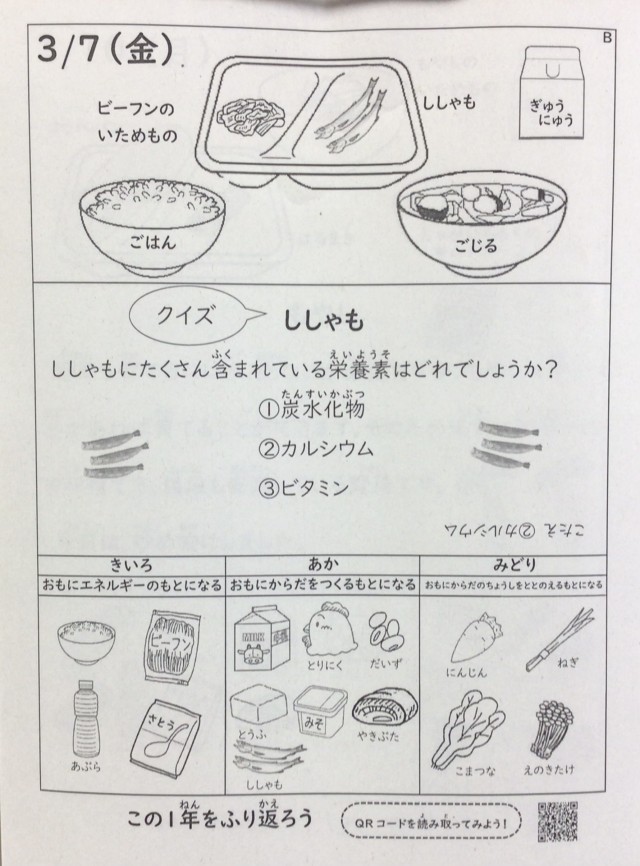 3/7(金)
B
ビーフンの
いためもの
ししゃも
ぎゅう
にゅう
ごはん
ごじる
クイズ
ししゃも
ししゃもにたくさん含まれている栄養素はどれでしょうか?
ふく
えいようそ
たんすいかぶつ
①炭水化物
②カルシウム
③ビタミン
こたえ ②カルシウム
きいろ
あか
みどり
おもにエネルギーのもとになる
おもにからだをつくるもとになる
おもにからだのちょうしをととのえるもとになる
ビーフン
あぶら
さとう
MILK
とりにく
だいず
とうふ
みそ
やきぶた
ししゃも
にんじん
ねぎ
こまつな
えのきたけ
ねん
かえ
この1年をふり返ろう
よ
と
QRコードを読み取ってみよう!